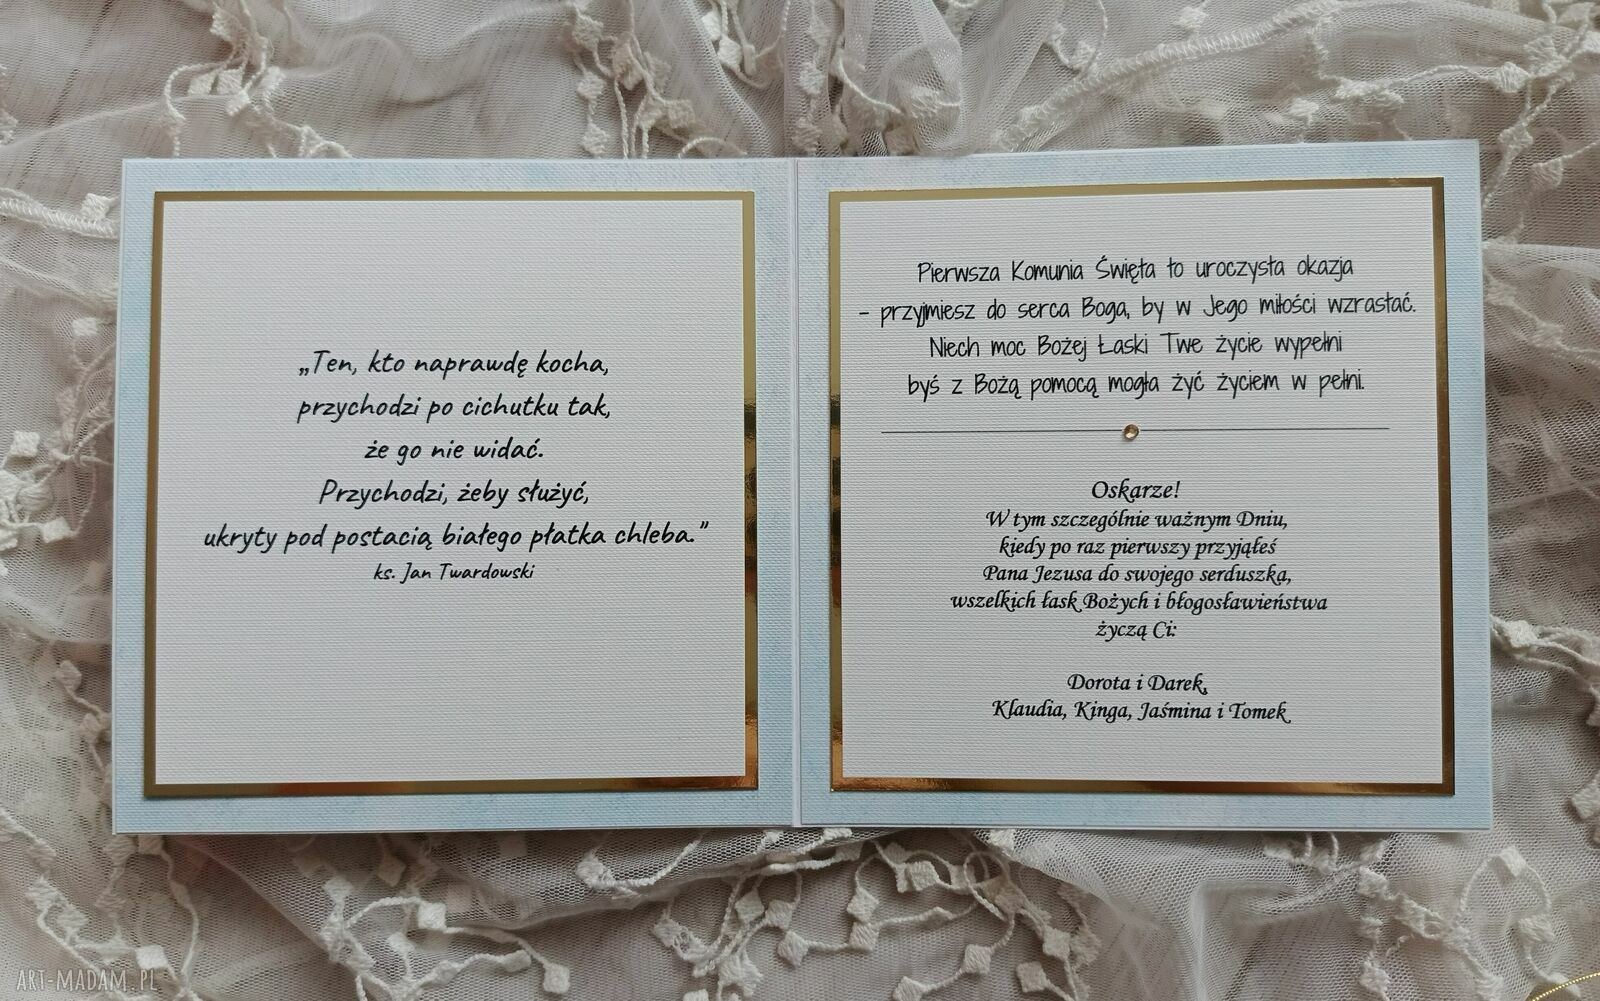 „Ten, kto naprawdę kocha,
przychodzi po cichutku tak,
że go nie widać.
Przychodzi, żeby służyć,
ukryty pod postacią białego płatka chleba.”
ks. Jan Twardowski
Pierwsza Komunia Święta to uroczysta okazja
- przyjmiesz do serca Boga, by w Jego miłości wzrastać.
Niech moc Bożej Łaski Twe życie wypełni
byś z Bożą pomocą mogła żyć życiem w pełni.
Oskarze!
W tym szczególnie ważnym Dniu,
kiedy po raz pierwszy przyjąłeś
Pana Jezusa do swojego serduszka,
wszelkich łask Bożych i błogosławieństwa
życzą Ci:
Dorota i Darek,
Klaudia, Kinga, Jaśmina i Tomek
ART-MADAM.PL